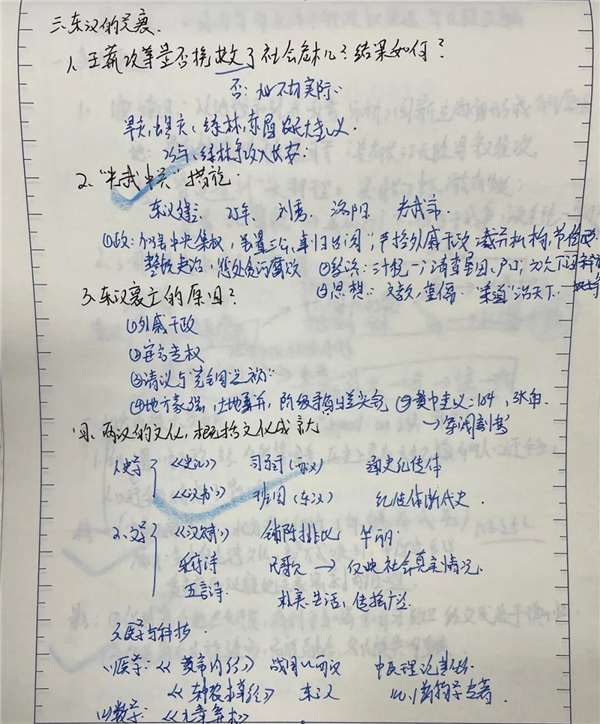 三、东汉的兴衰
1、王莽改革是否挽救了社会危机?结果如何?
否:不切实际
旱灾、蝗灾、绿林、赤眉农民大起义
25年、绿林军攻入长安
2、“光武中兴”措施
东汉建立 25年、刘秀、洛阳 光武帝
①政:加强中央集权,事归台阁,严格外戚干政 裁并机构,节省
整顿吏治,惩处贪污腐败 ②经济:三十税一;清查垦田、户口;
③思想:文教,重儒 “柔道”治天下
3、东汉衰亡的原因?
①外戚干政
②宦官专权
③清议与“党锢之祸”
④地方豪强,土地兼并,阶级矛盾尖锐 ⑤黄巾起义:184,张角
→军阀割据
四、两汉的文化,概括文化成就
1、史学 《史记》 司马迁(西汉) 通史纪传体
《汉书》 班固(东汉) 纪传体断代史
2、文学 《汉赋》 铺陈排比 华丽
乐府诗 民歌 → 反映社会真实情况
五言诗 朴素生活,传播广泛
3、医学与科技
(1)医学:《黄帝内经》 战国~西汉 中医理论基础
《神农本草经》 东汉 药物学专著
(2)数学:《九章算术》